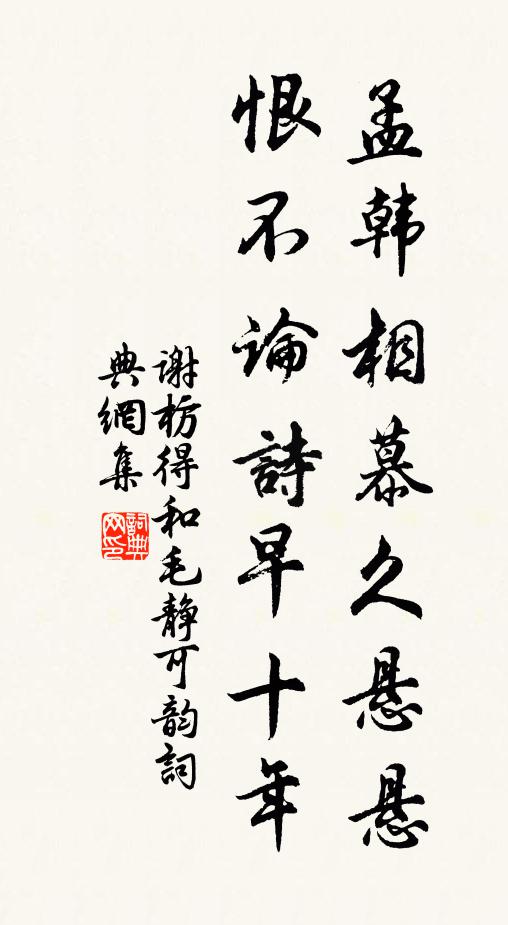 孟韩相慕久悬悬
恨不論詩早十年
谢枋得和毛静可韵詞
典網集
詞典网印